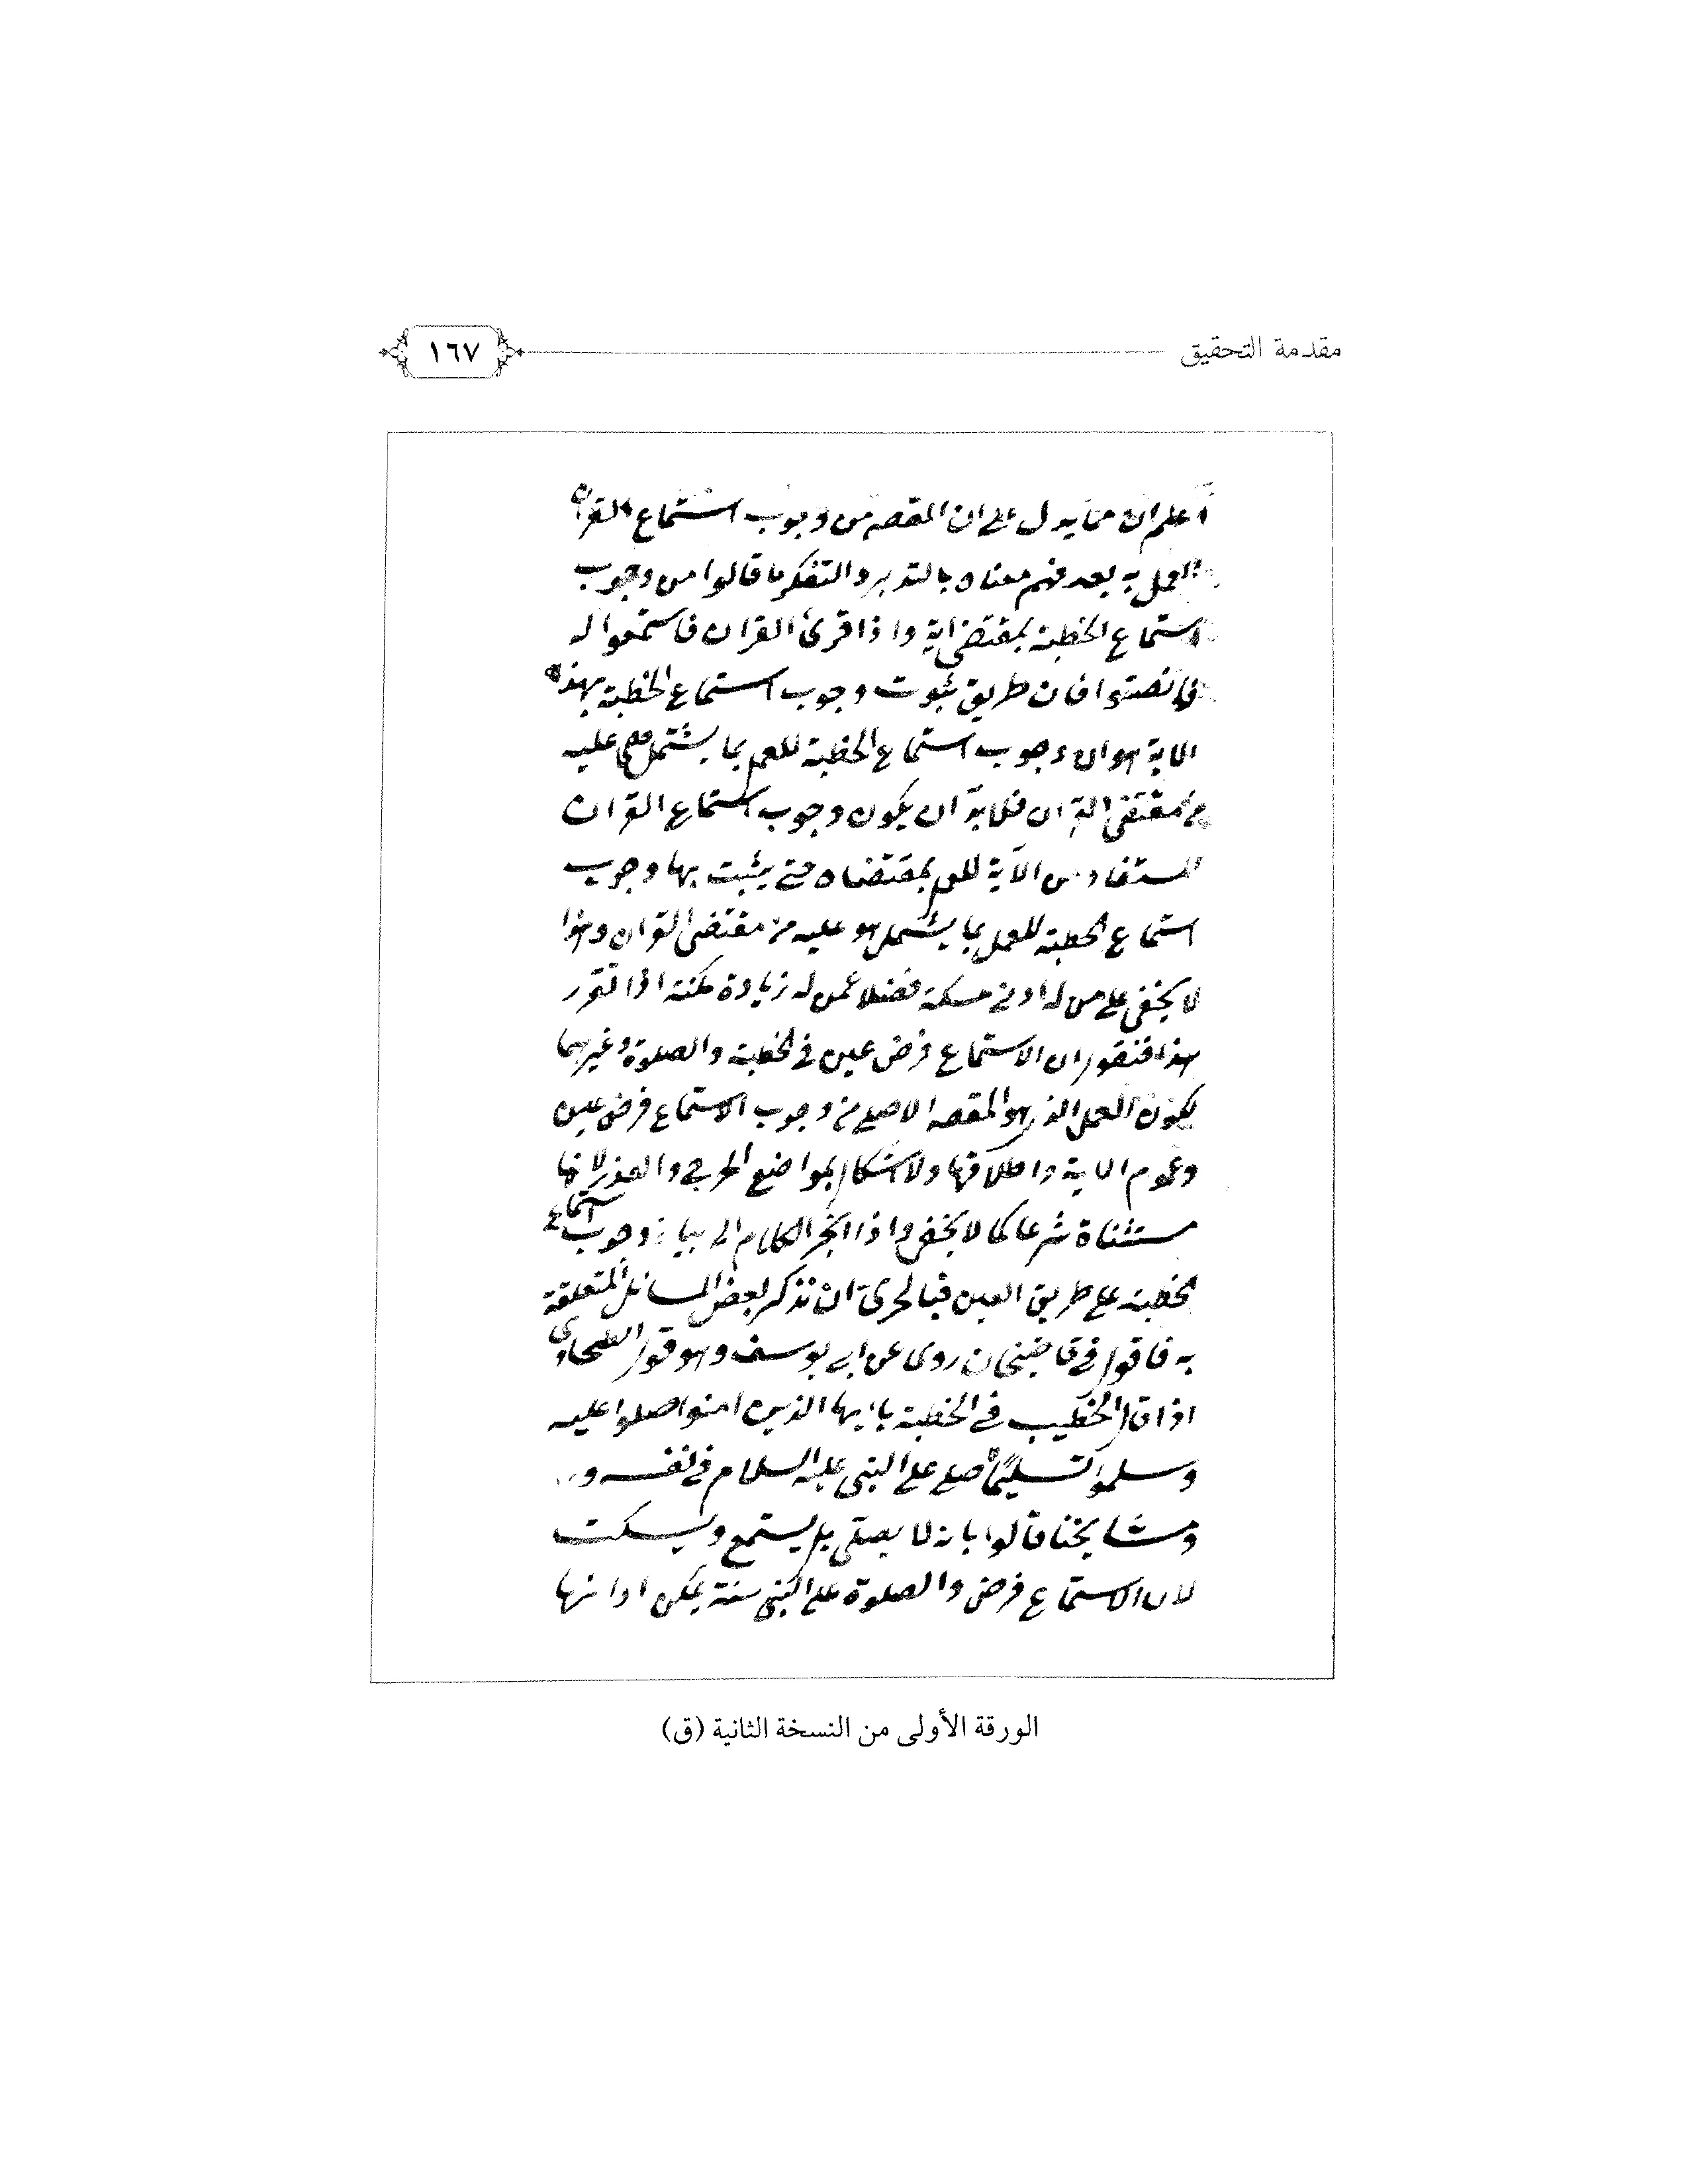 مقدمة التحقيق
١٦٧
اعلم ان مما يدل على ان المقصد من وجوب استماع القرآن
العمل به بعد فهم معناه بالتدبر والتفكر ما قالوا من وجوب
استماع الخطبة بمقتضى اية واذا قرئ القران فاستمعوا له
وانصتوا فان طريق ثبوت وجوب استماع الخطبة بهذه
الاية هو ان وجوب استماع الخطبة للعمل بما يشتمل هى عليه
من مقتضى القران فلا بد ان يكون وجوب استماع القران
المستفاد من الآية للعمل بمقتضاه حتى يثبت بها وجوب
استماع الخطبة للعمل بما يشتمل هو عليه من مقتضى القران وهذا
لا يخفى على من له ادنى مسكة فضلا عمن له زيادة مكنة اذا تقرر
هذا فنقول ان الاستماع فرض عين فى الخطبة والصلوة وغيرهما
لكون العمل الذى هو المقصد الاصلى من وجوب الاستماع فرض عين
وعموم الاية واطلاقها ولا اشكال بمواضع الحرج والعذر لانها
مستثناة شرعا كما لا يخفى واذا انجر الكلام الى بيان وجوب استماع
الخطبة على طريق العين فبالحرى ان نذكر بعض المسائل المتعلقة
به فاقول فى قاضيخان روى عن ابى يوسف وهو قول الطحاوى
اذا قال الخطيب فى الخطبة يا ايها الذين امنوا صلوا عليه
وسلموا تسليمًا صلى على النبى عليه السلام فى نفسه و..
ومشايخنا قالوا بانه لا يصلى بل يستمع ويسكت
لان الاستماع فرض والصلوة على النبى سنة يمكن ادائها
الورقة الأولى من النسخة الثانية (ق)